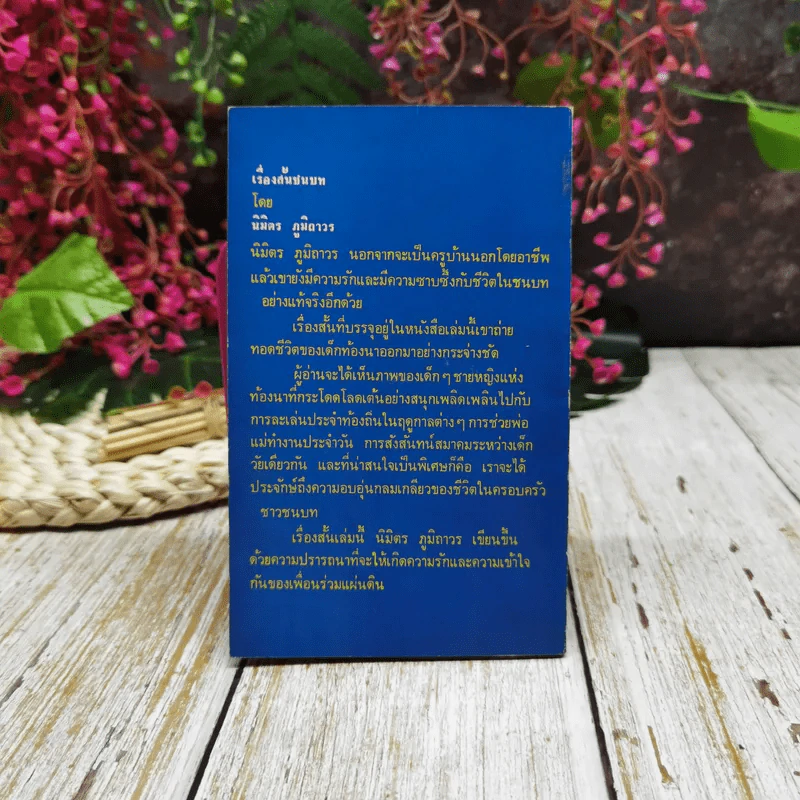 เรื่องสั้นชนบท
โดย
นิมิตร ภูมิถาวร
นิมิตร ภูมิถาวร นอกจากจะเป็นครูบ้านนอกโดยอาชีพ
แล้วเขายังมีความรักและมีความซาบซึ้งกับชีวิตในชนบท
อย่างแท้จริงอีกด้วย
เรื่องสั้นที่บรรจุอยู่ในหนังสือเล่มนี้เขาถ่าย
ทอดชีวิตของเด็กท้องนาออกมาอย่างกระจ่างชัด
ผู้อ่านจะได้เห็นภาพของเด็ก ๆ ชายหญิงแห่ง
ท้องนาที่กระโดดโลดเต้นอย่างสนุกเพลิดเพลินไปกับ
การละเล่นประจำท้องถิ่นในฤดูกาลต่าง ๆ การช่วยพ่อ
แม่ทำงานประจำวัน การสังสันทน์สมาคมระหว่างเด็ก
วัยเดียวกัน และที่น่าสนใจเป็นพิเศษก็คือ เราจะได้
ประจักษ์ถึงความอบอุ่นกลมเกลียวของชีวิตในครอบครัว
ชาวชนบท
เรื่องสั้นเล่มนี้ นิมิตร ภูมิถาวร เขียนขึ้น
ด้วยความปรารถนาที่จะให้เกิดความรักและความเข้าใจ
กันของเพื่อนร่วมแผ่นดิน